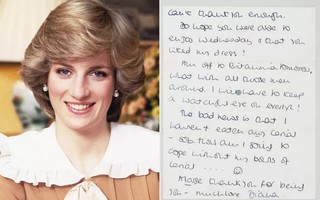 can't thank you enough.
Do hope you were able to
enjoy Wednesday & that you
liked his dress!
I'm off to Britannia tomorrow,
what with all those men
around. I will have to keep
a watchful eye on everyth!
The bad news is that I
haven't eaten any cereal
- so
cope without his bowls of
cereal ....
thank you for being
you - much love Diana